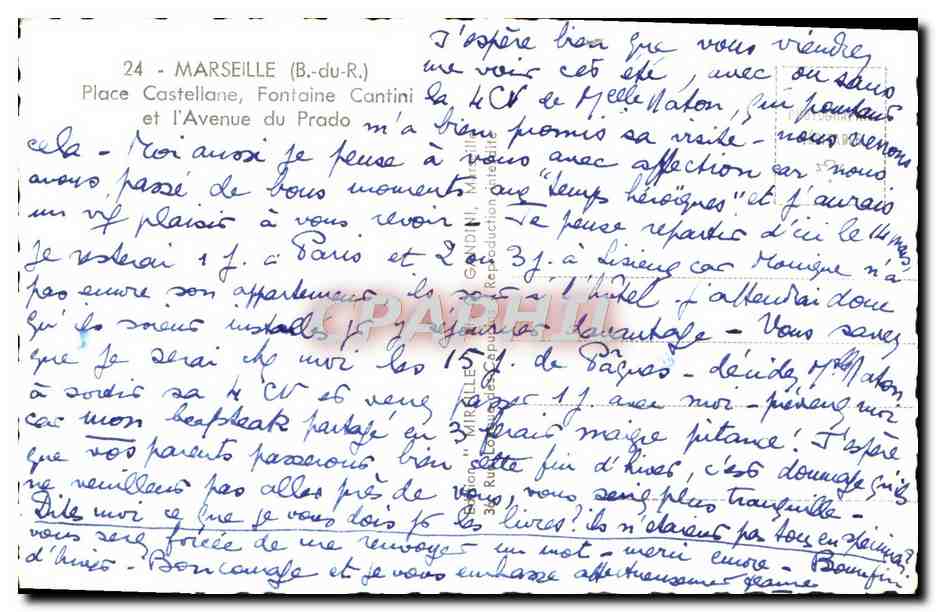 24 - MARSEILLE (B.-du-R.)
Place Castellane, Fontaine Cantini
et l'Avenue du Prado
J'espère bien que vous viendrez
me voir cet été, avec ou sans
la 4 CV de Melle Naton, qui pourtant
m'a bien promis sa visite - nous verrons
cela - Moi aussi je pense à vous avec affection car nous
avons passé de bons moments aux "temps héroïques" et j'aurais
un vif plaisir à vous revoir - Je pense repartir d'ici le 14 mars,
je resterai 1 j. à Paris et 2 ou 3 j. à Lisieux car Monique n'a
pas encore son appartement, ils sont à l'hôtel - j'attendrai donc
qu'ils soient installés pr y séjourner davantage - Vous savez
que je serai chez moi les 15 j. de Pâques - décidez Melle Naton
à sortir sa 4 CV et venez passer 1 j. avec moi - prévenez moi
car mon beefsteak partagé en 3 serait maigre pitance ! J'espère
que vos parents passeront bien cette fin d'hiver, c'est dommage qu'ils
ne veuillent pas aller près de vous, vous seriez plus tranquille -
Dites moi ce que je vous dois pr les livres ? ils n'étaient pas tous en
vous serez forcée de me renvoyer un mot - merci encore - Bonne fin
d'hiver - Bon courage et je vous embrasse affectueusement Jeanne
Editions " MIREILLE " GANDINI, Marseille
36, Rue Reproduction interdite
CPAPHIL